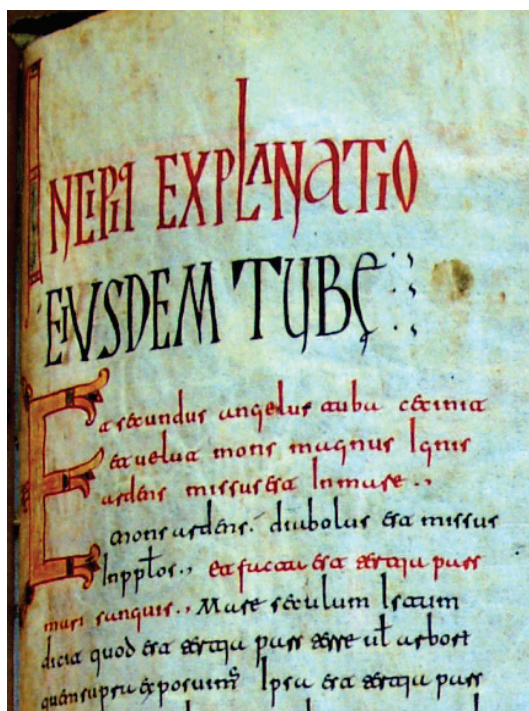 INCIPIT EXPLANATIO
EIUSDEM TUBE
Et secundus angelus tuba cecinit
et velut mons magnus Ignis
ardens missus est In mare.,
mons ardens. diabolus est missus
In pplos., et facta est tertia pars
maris sanguis., Mare seculum Istum
dicit quod est tertia pars terre ul arbores
quam supra exposuim Ipsa est tertia pars